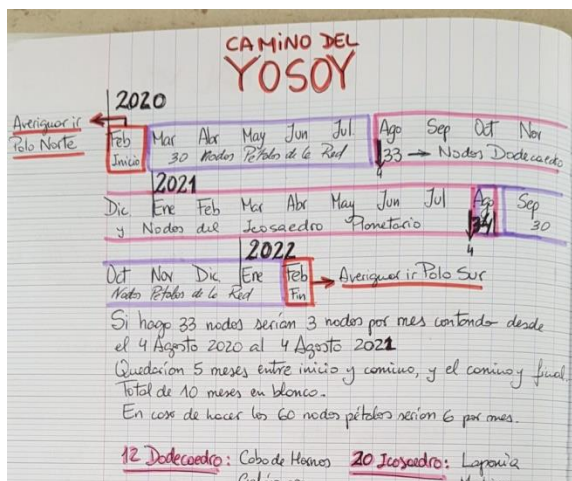 CAMINO DEL
YOSOY
2020
Averiguar ir
Polo Norte
Feb Mar Abr May Jun Jul Ago Sep Oct Nov
Inicio 30 Nodos Pétalos de la Red 33 → Nodos Dodecaedro
4
2021
Dic Ene Feb Mar Abr May Jun Jul Ago Sep
y Nodos del Icosaedro Planetario 34 30
4
2022
Oct Nov Dic Ene Feb Averiguar ir Polo Sur
Nodos Pétalos de la Red Fin
Si hago 33 nodos serían 3 nodos por mes contando desde
el 4 Agosto 2020 al 4 Agosto 2021
Quedarían 5 meses entre inicio y camino, y el camino y final.
Total de 10 meses en blanco.
En caso de hacer los 60 nodos pétalos serían 6 por mes.
12 Dodecaedro: Cabo de Hornos 20 Icosaedro: Laponia